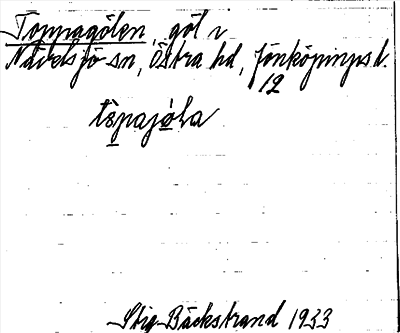 Toppagölen, göl i
Nävelsjö sn, Östra hd, Jönköpings l.
12
tòpajö̀la
Stig Bäckstrand 1933